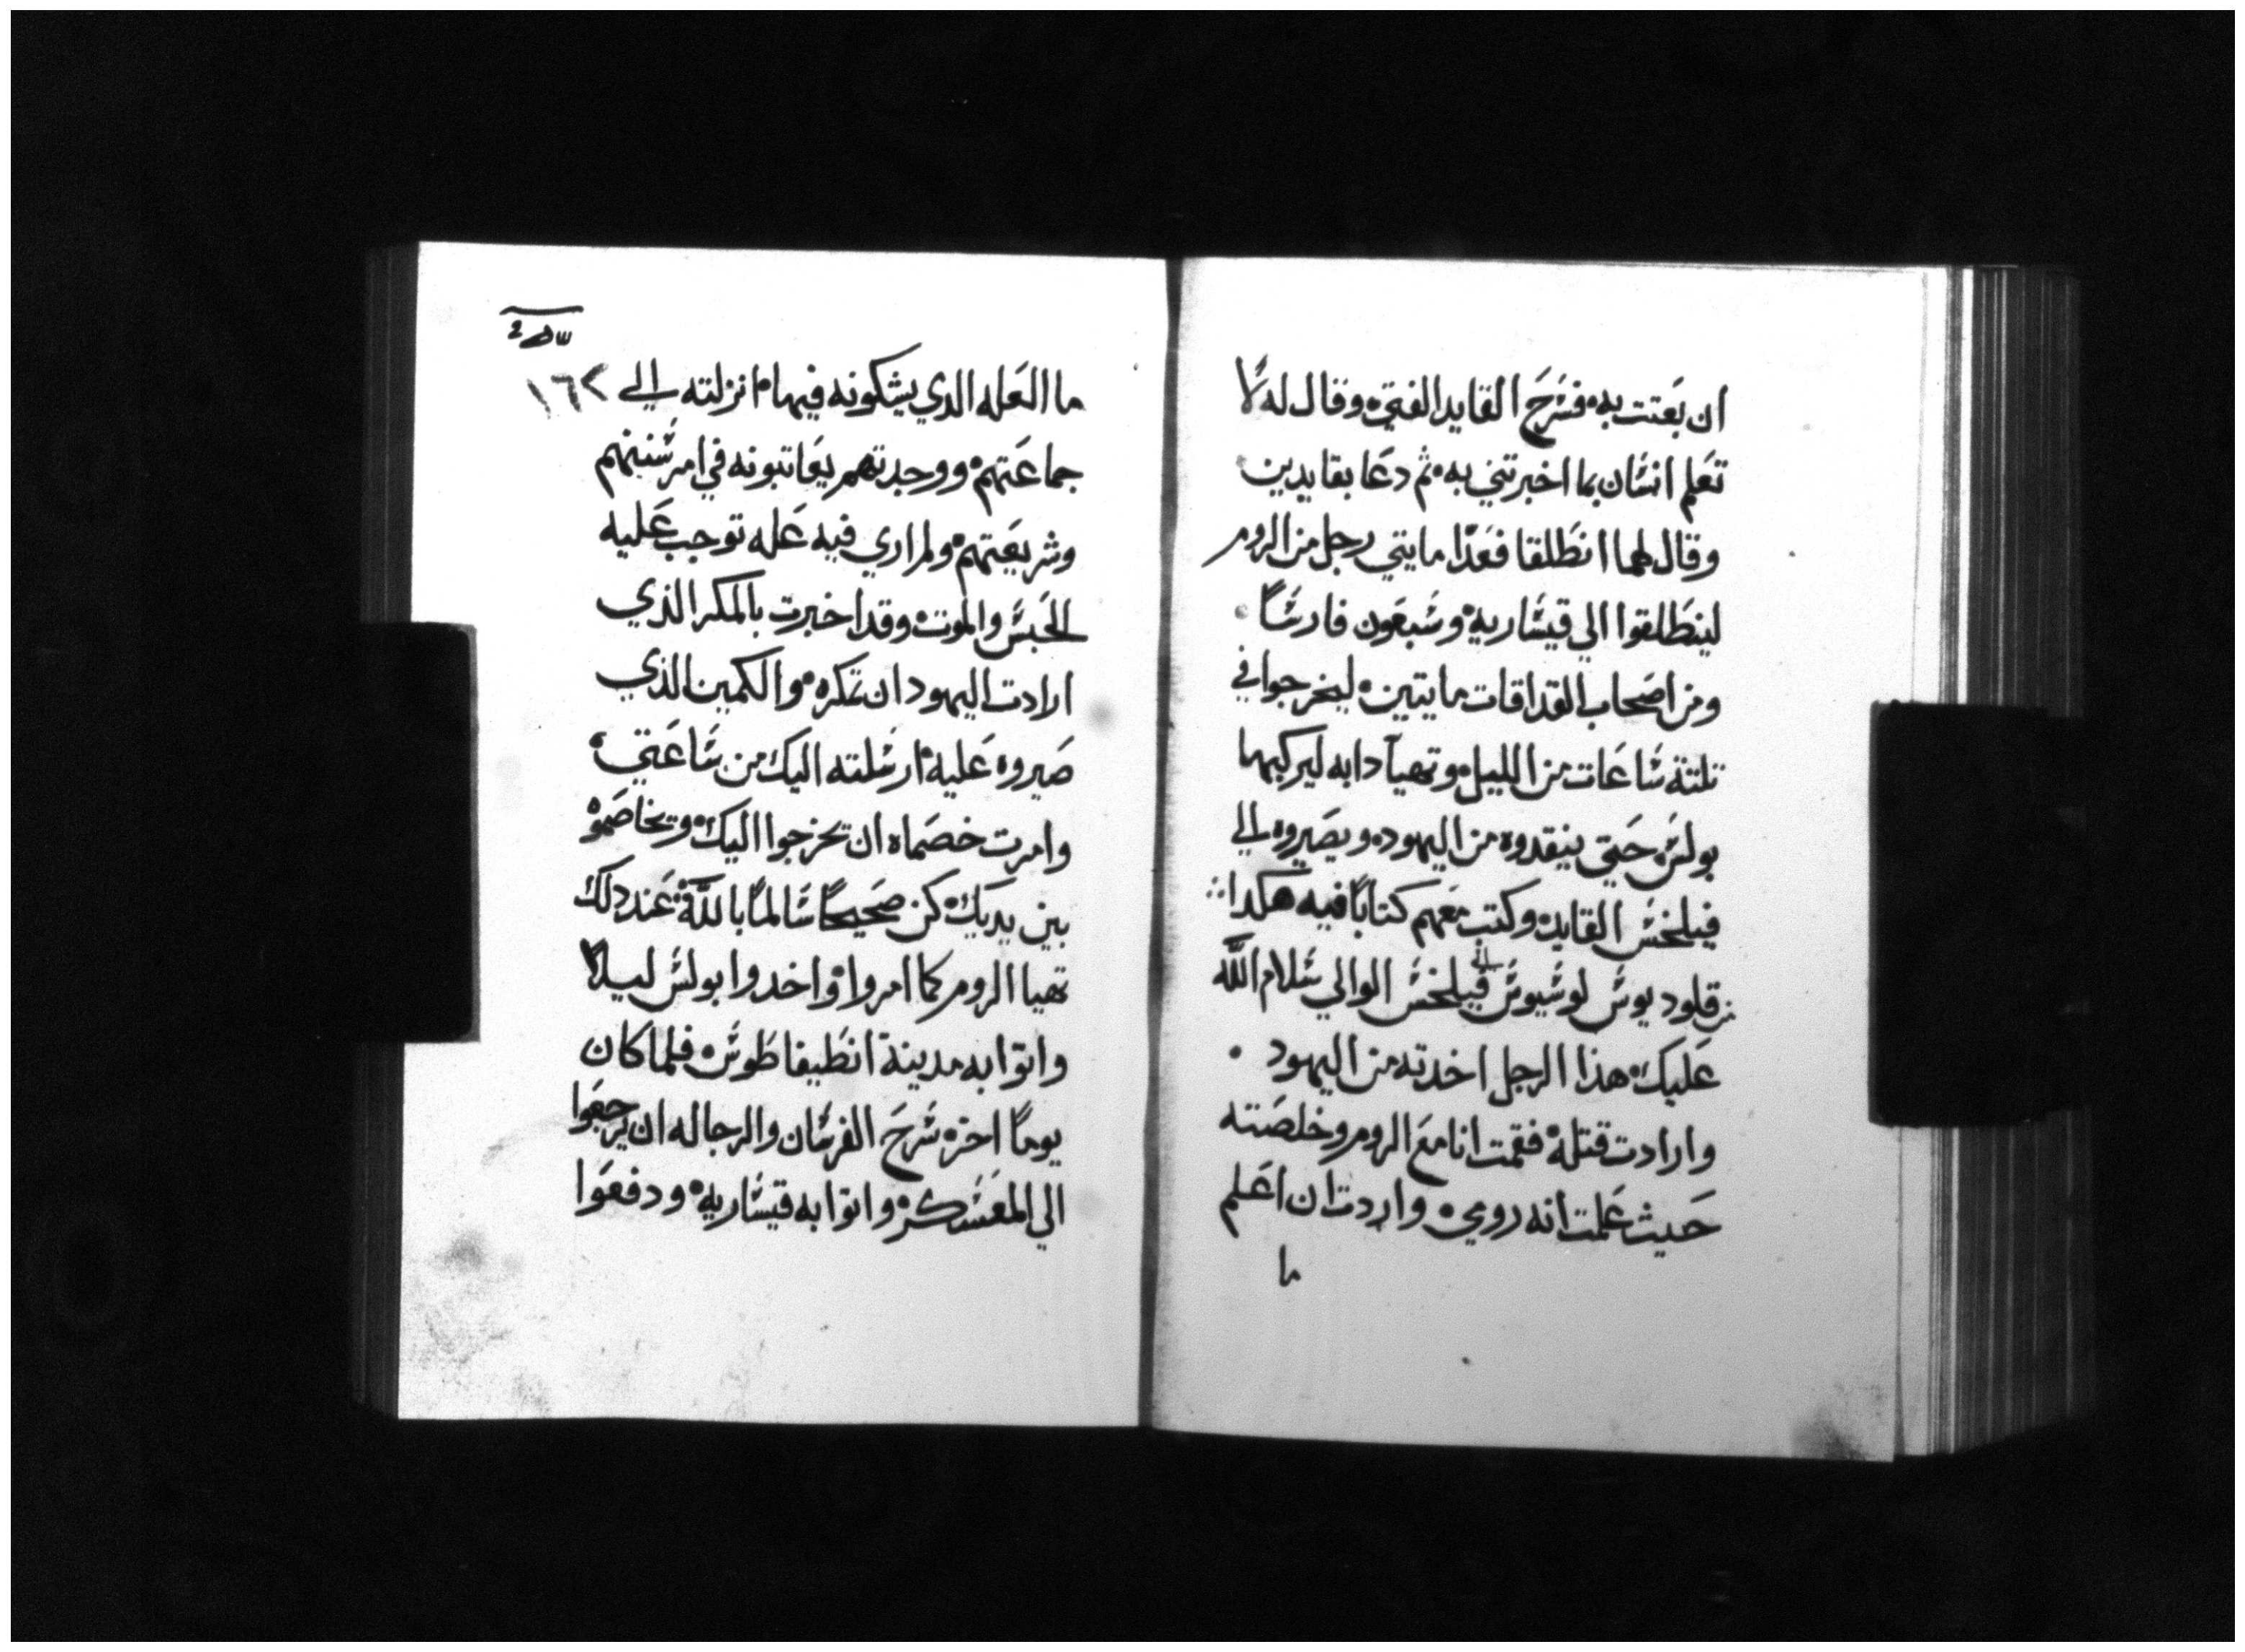 ان بعَتت به فسَرَحَ القايد الفتي وقال له لا
تعَلم انسَان بما اخبرتني به ثم دعَا بقايدين
وقال لهما انطَلقا فعَدّا مايتي رجل من الروم
لينطَلقوا الي قيسَاريه وسَبعَون فارسَاً
ومن اصَحاب القداقات مايتين ليخرجوا في
تلتة سَاعَات من الليل وتهيآ دابه ليركبها
بولسَ حَتي ينقدوه من اليهود ويصَيروه الي
فيلخسَ القايد وكتب معَهم كتاباً فيه هكدا
من قلوديوسَ لوسَيوسَ الي فيلخسَ الوالي سَلام اللّه
عَليك هذا الرجل اخدته من اليهود
وارادت قتله فقمت انا معَ الروم وخلصَته
حَيث عَلمت انه رومي واردت ان اعَلم
ما
١٦٢
ما العَله الدي يشكونه فيها انزلته الي
جماعَتهم ووجدتهم يعَاتبونه في امر سَننهم
وشريعَتهم ولم اري فيه عَله توجب عَليه
الحَبسَ والموت وقد اخبرت بالمكر الذي
ارادت اليهود ان تمكره والكمين الذي
صَيروه عَليه ارسَلته اليك من سَاعَتي
وامرت خصَماه ان تخرجوا اليك وتخاصَموه
بين يديك كن صَحيحاً سَالماً باللّه عَند دلك
تهيا الروم كما امروا واخدوا بولسَ ليلا
واتوا به مدينة انطَيفاطَوسَ فلما كان
يوماً اخر سَرحَ الفرسَان والرجاله ان يرجعَوا
الي المعَسَكر واتوا به قيسَاريه ودفعَوا